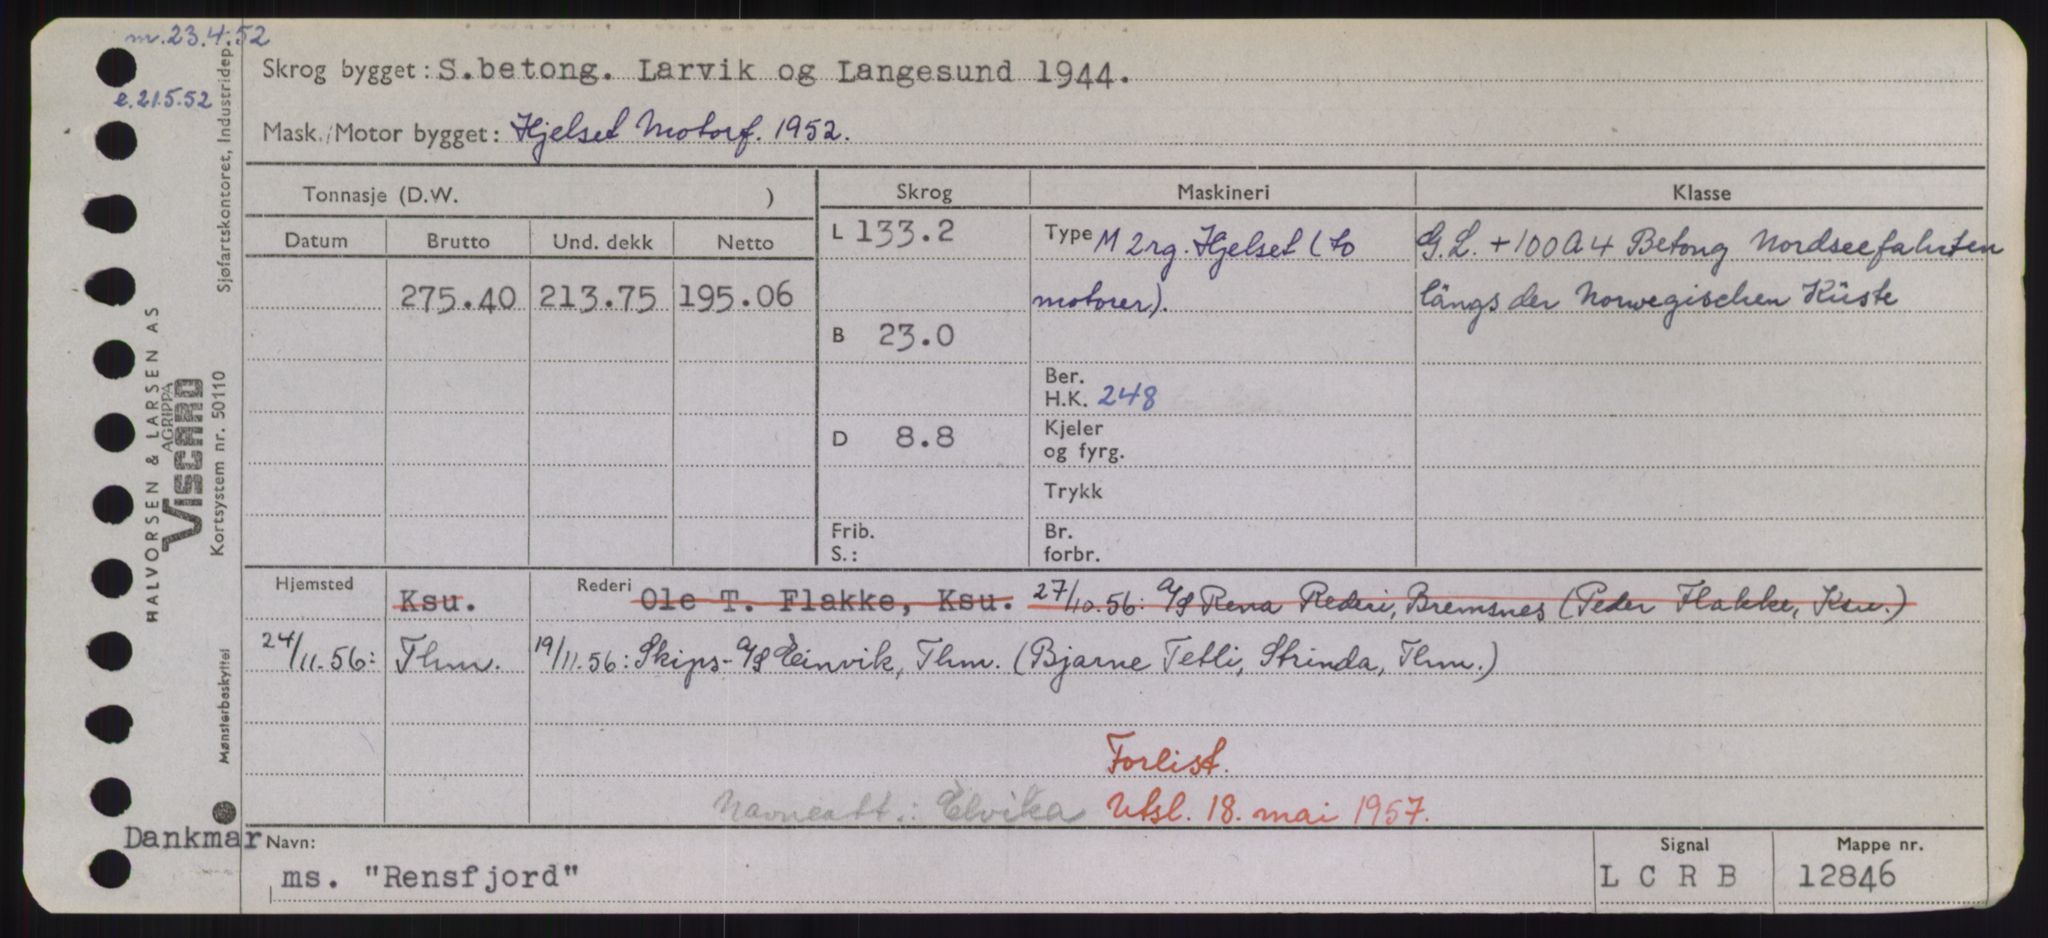 m. 23.4.52
e. 21.5.52
Skrog bygget: S.betong. Larvik og Langesund 1944.
Mask./Motor bygget: Hjelset Motorf. 1952.
Tonnasje (D.W. )
Skrog
Maskineri
Klasse
Datum
Brutto
Und. dekk
Netto
275.40
213.75
195.06
L 133.2
B 23.0
D 8.8
Frib.
S.:
Type M 2rg. Hjelset (to
motorer).
Ber.
H.K. 248
Kjeler
og fyrg.
Trykk
Br.
forbr.
G.L. +100A4 Betong Nordseefahrten
längs der Norwegischen Küste
Hjemsted
Ksu.
Rederi Ole T. Flakke, Ksu. 27/10.56: A/S Rena Rederi, Bremsnes (Peder Flakke, Ksu.)
24/11.56: Thm. 19/11.56: Skips-A/S Einvik, Thm. (Bjarne Tetli, Strinda, Thm.)
Forlist.
Navneatt.: Elvika Utsl. 18. mai 1957.
Dankmar
Navn:
ms. "Rensfjord"
Signal
L C R B
Mappe nr.
12846
Sjøfartskontoret, Industridep.
HALVORSEN & LARSEN AS
AGRIPPA
VISCARD
Kortsystem nr. 50110
Mønsterbeskyttet